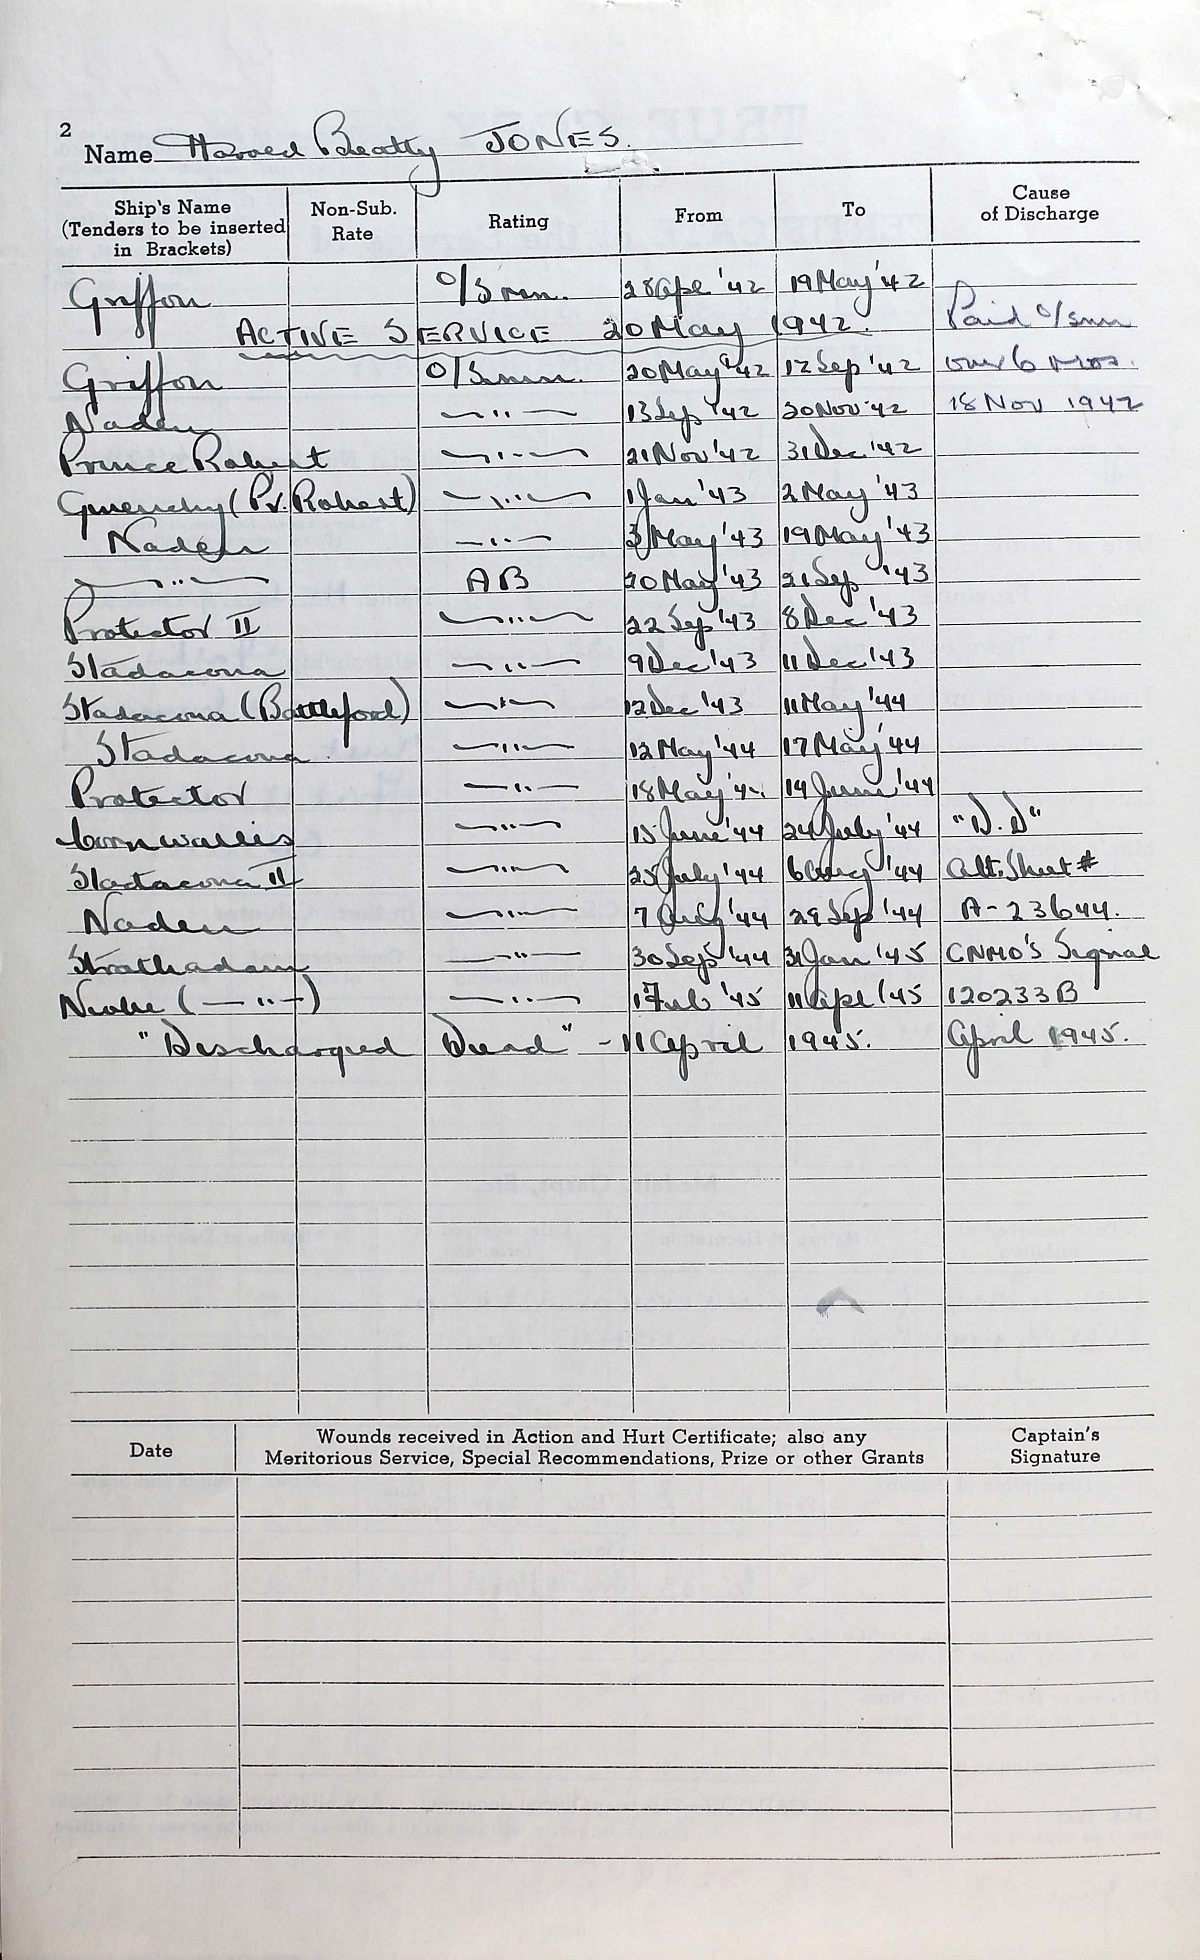 2
Name Harold Beatty JONES.
Ship's Name (Tenders to be inserted in Brackets) Non-Sub. Rate Rating From To Cause of Discharge
Griffon O/Smn. 28 Apl '42 19 May '42
ACTIVE SERVICE 20 May 1942. Paid O/Smn
Griffon O/Smn. 20 May '42 12 Sep '42 over 6 mos.
Naden —"— 13 Sep '42 20 Nov '42 18 Nov 1942
Prince Robert —"— 21 Nov '42 31 Dec '42
(Pr. Robert) —"— 1 Jan '43 2 May '43
Naden —"— 3 May '43 19 May '43
—"— AB 20 May '43 21 Sep '43
Protector II —"— 22 Sep '43 8 Dec '43
Stadacona —"— 9 Dec '43 11 Dec '43
Stadacona (Battleford) —"— 12 Dec '43 11 May '44
Stadacona —"— 12 May '44 17 May '44
Protector —"— 18 May '44 14 June '44
Cornwallis —"— 15 June '44 24 July '44 "D.D"
Stadacona II —"— 25 July '44 6 Aug '44 Alt. Sheet #
Naden —"— 7 Aug '44 29 Sep '44 A-23644.
Strathadam —"— 30 Sep '44 31 Jan '45 CNMO's Signal
Niobe (—"—) —"— 1 Feb '45 11 Apl '45 120233B
"Discharged Dead" - 11 April 1945. April 1945.
Date Wounds received in Action and Hurt Certificate; also any Meritorious Service, Special Recommendations, Prize or other Grants Captain's Signature